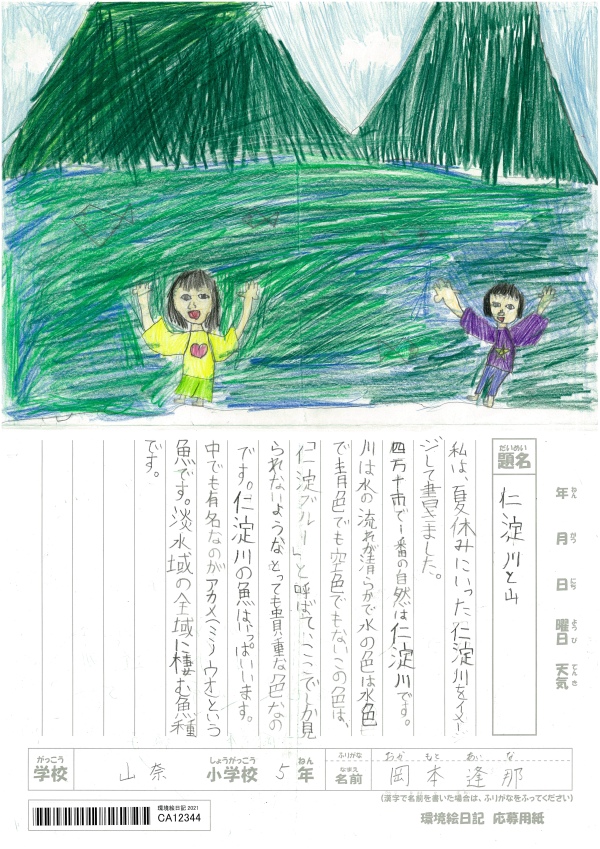 だいめい
題名
仁淀川と山
年 ねん
月 がつ
日 にち
曜日 ようび
天気 てんき
私は、夏休みにいった仁淀川をイメー
ジして書きました。
四万十市で1番の自然は仁淀川です。
川は水の流れが清らかで水の色は水色
で青色でも空色でもないこの色は、
「仁淀ブルー」と呼ばれていてここでしか見
られないような、とっても貴重な色なの
です。仁淀川の魚はいっぱいいます。
中でも有名なのがアカメ(ミノウオ)という
魚です。淡水域の全域に棲む魚種
です。
がっこう
学校
山奈
しょうがっこう
小学校
5
ねん
年
ふりがな
おか もと あい な
なまえ
名前
岡本逢那
(漢字で名前を書いた場合は、ふりがなをふってください)
環境絵日記 2021
CA12344
環境絵日記 応募用紙